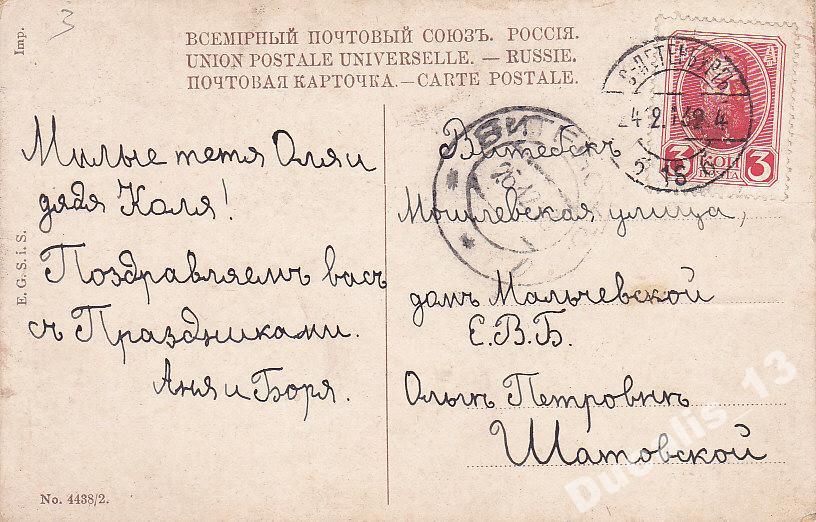 3
Imp.
ВСЕМІРНЫЙ ПОЧТОВЫЙ СОЮЗЪ. РОССІЯ.
UNION POSTALE UNIVERSELLE. — RUSSIE.
ПОЧТОВАЯ КАРТОЧКА. — CARTE POSTALE.
Милые тетя Оля и
дядя Коля!
Поздравляемъ васъ
съ Праздниками.
Аня и Боря.
E. G. S. i. S.
No. 4438/2.
С-ПЕТЕРБУРГЪ
3 КОП 3
ПОЧТА
Витебскъ
Могилевская улица,
домъ Мальчевской
Е.В.Б.
Ольгѣ Петровнѣ
Шатовской
Duealis_13